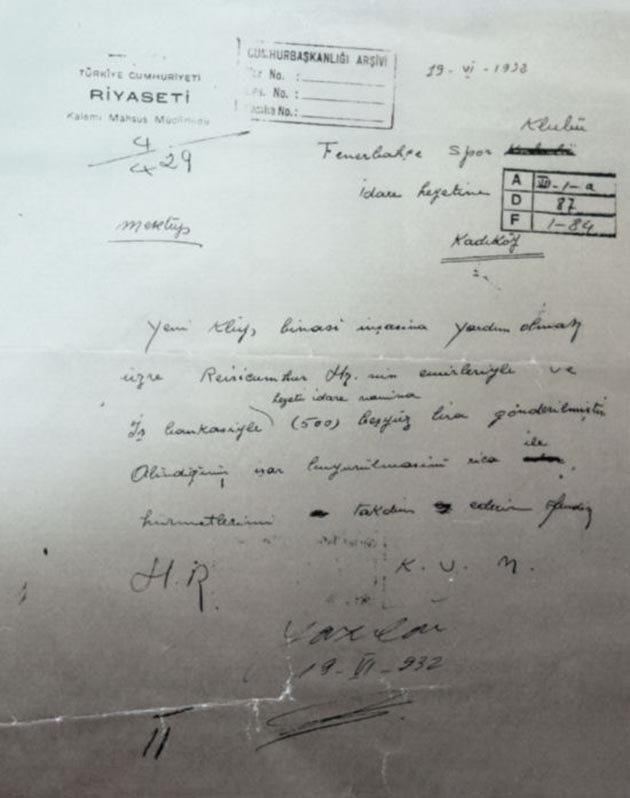 TÜRKİYE CUMHURİYETİ
RİYASETİ
Kalemi Mahsus Müdürlüğü
4/429
CUMHURBAŞKANLIĞI ARŞİVİ
No. :
No. :
No.:
19-VI-1932
Klubü
Fenerbahçe Spor
idare heyetine
A VII-1-a
D 87
F 1-84
Mektup
Kadıköy
Yeni Klüp binasi inşasına yardım olmak
üzre Reisicumhur Hz. nin emirleriyle ve
heyeti idare namına
İş bankasiyle (500) beşyüz lira gönderilmiştir
ile
Alındığının işar buyurulmasini rica
hürmetlerimi takdim ederim efendim
H.R.
K. U. M.
19-VI-932
II